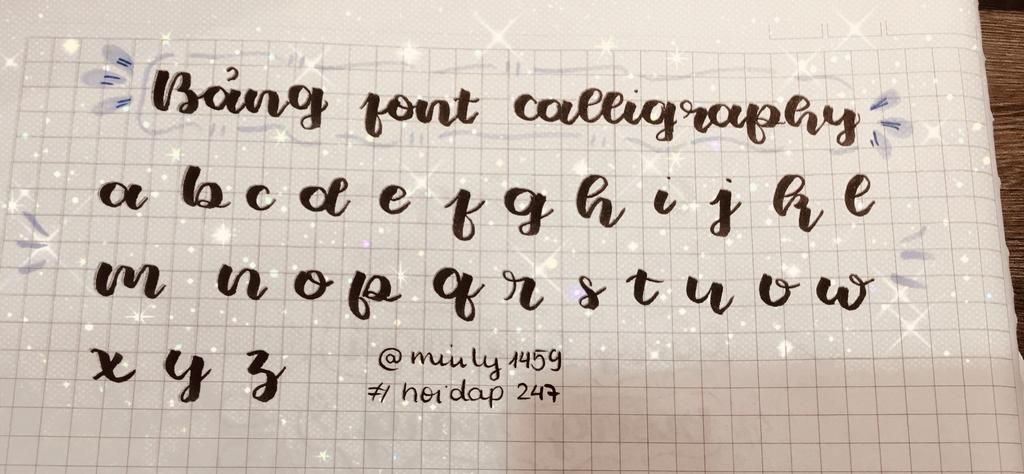 Bảng font calligraphy
a b c d e f g h i j k l
m n o p q r s t u v w
x y z
@miuly1459
#hoidap247